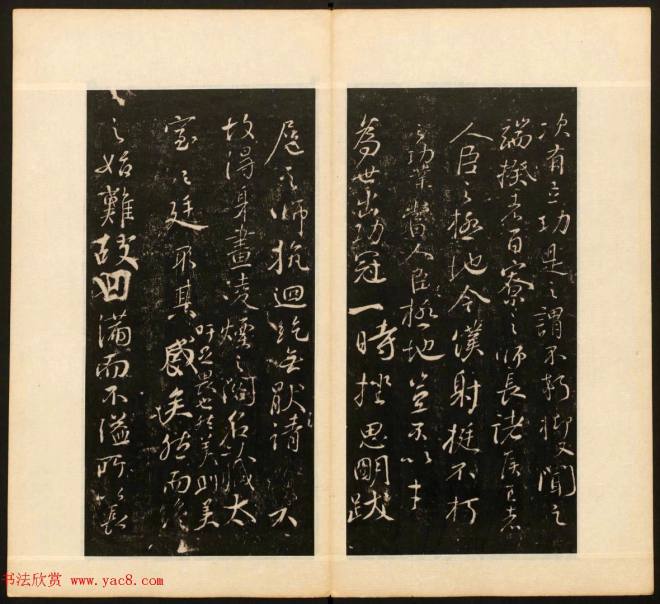 次有立功是之謂不朽抑又聞之
端揆者百寮之師長諸侯王者
人臣之極地今僕射挺不朽
之功業當人臣極地豈不以才
為世出功冠一時挫思明跋
扈之師抗迴紇無厭之請
故得身畫凌煙之閣名藏太
室之廷
吁足畏也然美則美
矣然而終
之始難故曰滿而不溢所以長
书法欣赏 www.yac8.com